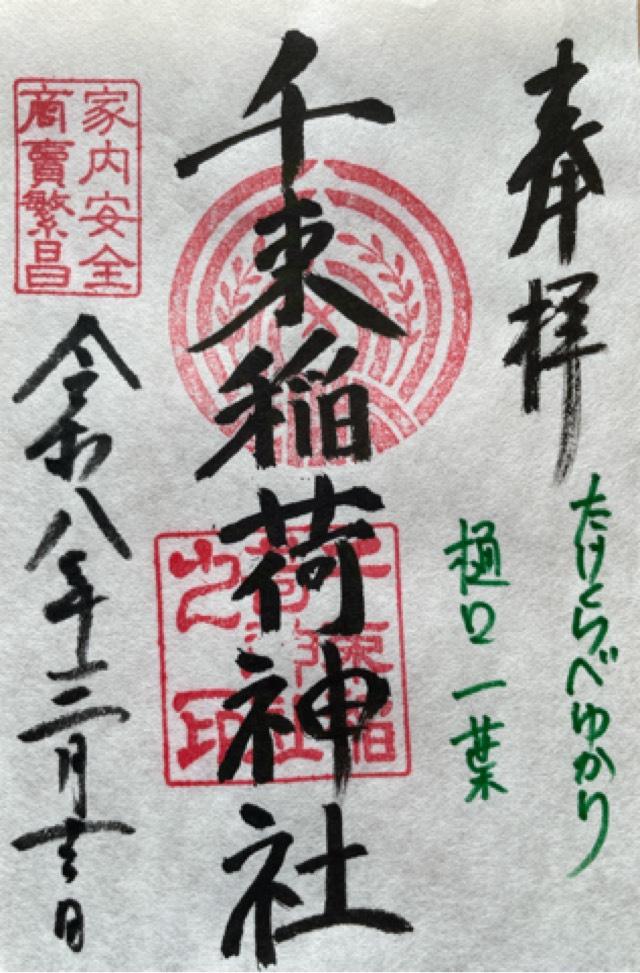 奉拝
たけくらべゆかり
樋口一葉
千束稲荷神社
千束稲
荷神社
之印
家内安全
商賣繁昌
令和八年二月吉日